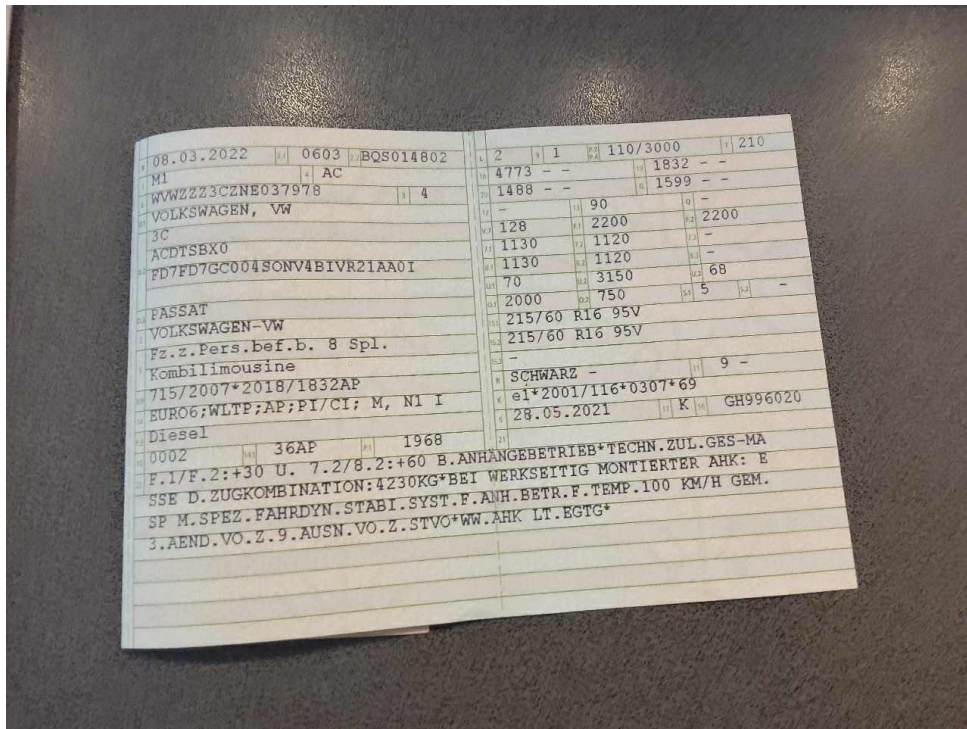 08.03.2022 2.1 0603 2.2 BQS014802
M1 4 AC
WVWZZZ3CZNE037978 3 4
VOLKSWAGEN, VW
3C
ACDTSBX0
FD7FD7GC004SONV4BIVR21AA0I
PASSAT
VOLKSWAGEN-VW
Fz.z.Pers.bef.b. 8 Spl.
Kombilimousine
715/2007*2018/1832AP
EURO6;WLTP;AP;PI/CI; M, N1 I
Diesel
0002 14.1 36AP P.1 1968
L 2 9 1 P.2 P.4 110/3000 T 210
18 4773 - - 19 1832 - -
20 1488 - - G 1599 - -
12 - 13 90 Q -
V.7 128 F.1 2200 F.2 2200
7.1 1130 7.2 1120 7.3 -
8.1 1130 8.2 1120 8.3 -
U.1 70 U.2 3150 U.3 68
O.1 2000 O.2 750 S.1 5 S.2 -
15.1 215/60 R16 95V
15.2 215/60 R16 95V
15.3 -
R SCHWARZ - 11 9 -
K e1*2001/116*0307*69
6 28.05.2021 17 K 16 GH996020
21
F.1/F.2:+30 U. 7.2/8.2:+60 B.ANHÄNGEBETRIEB*TECHN.ZUL.GES-MA
SSE D.ZUGKOMBINATION:4230KG*BEI WERKSEITIG MONTIERTER AHK: E
SP M.SPEZ.FAHRDYN.STABI.SYST.F.ANH.BETR.F.TEMP.100 KM/H GEM.
3.AEND.VO.Z.9.AUSN.VO.Z.STVO*WW.AHK LT.EGTG*